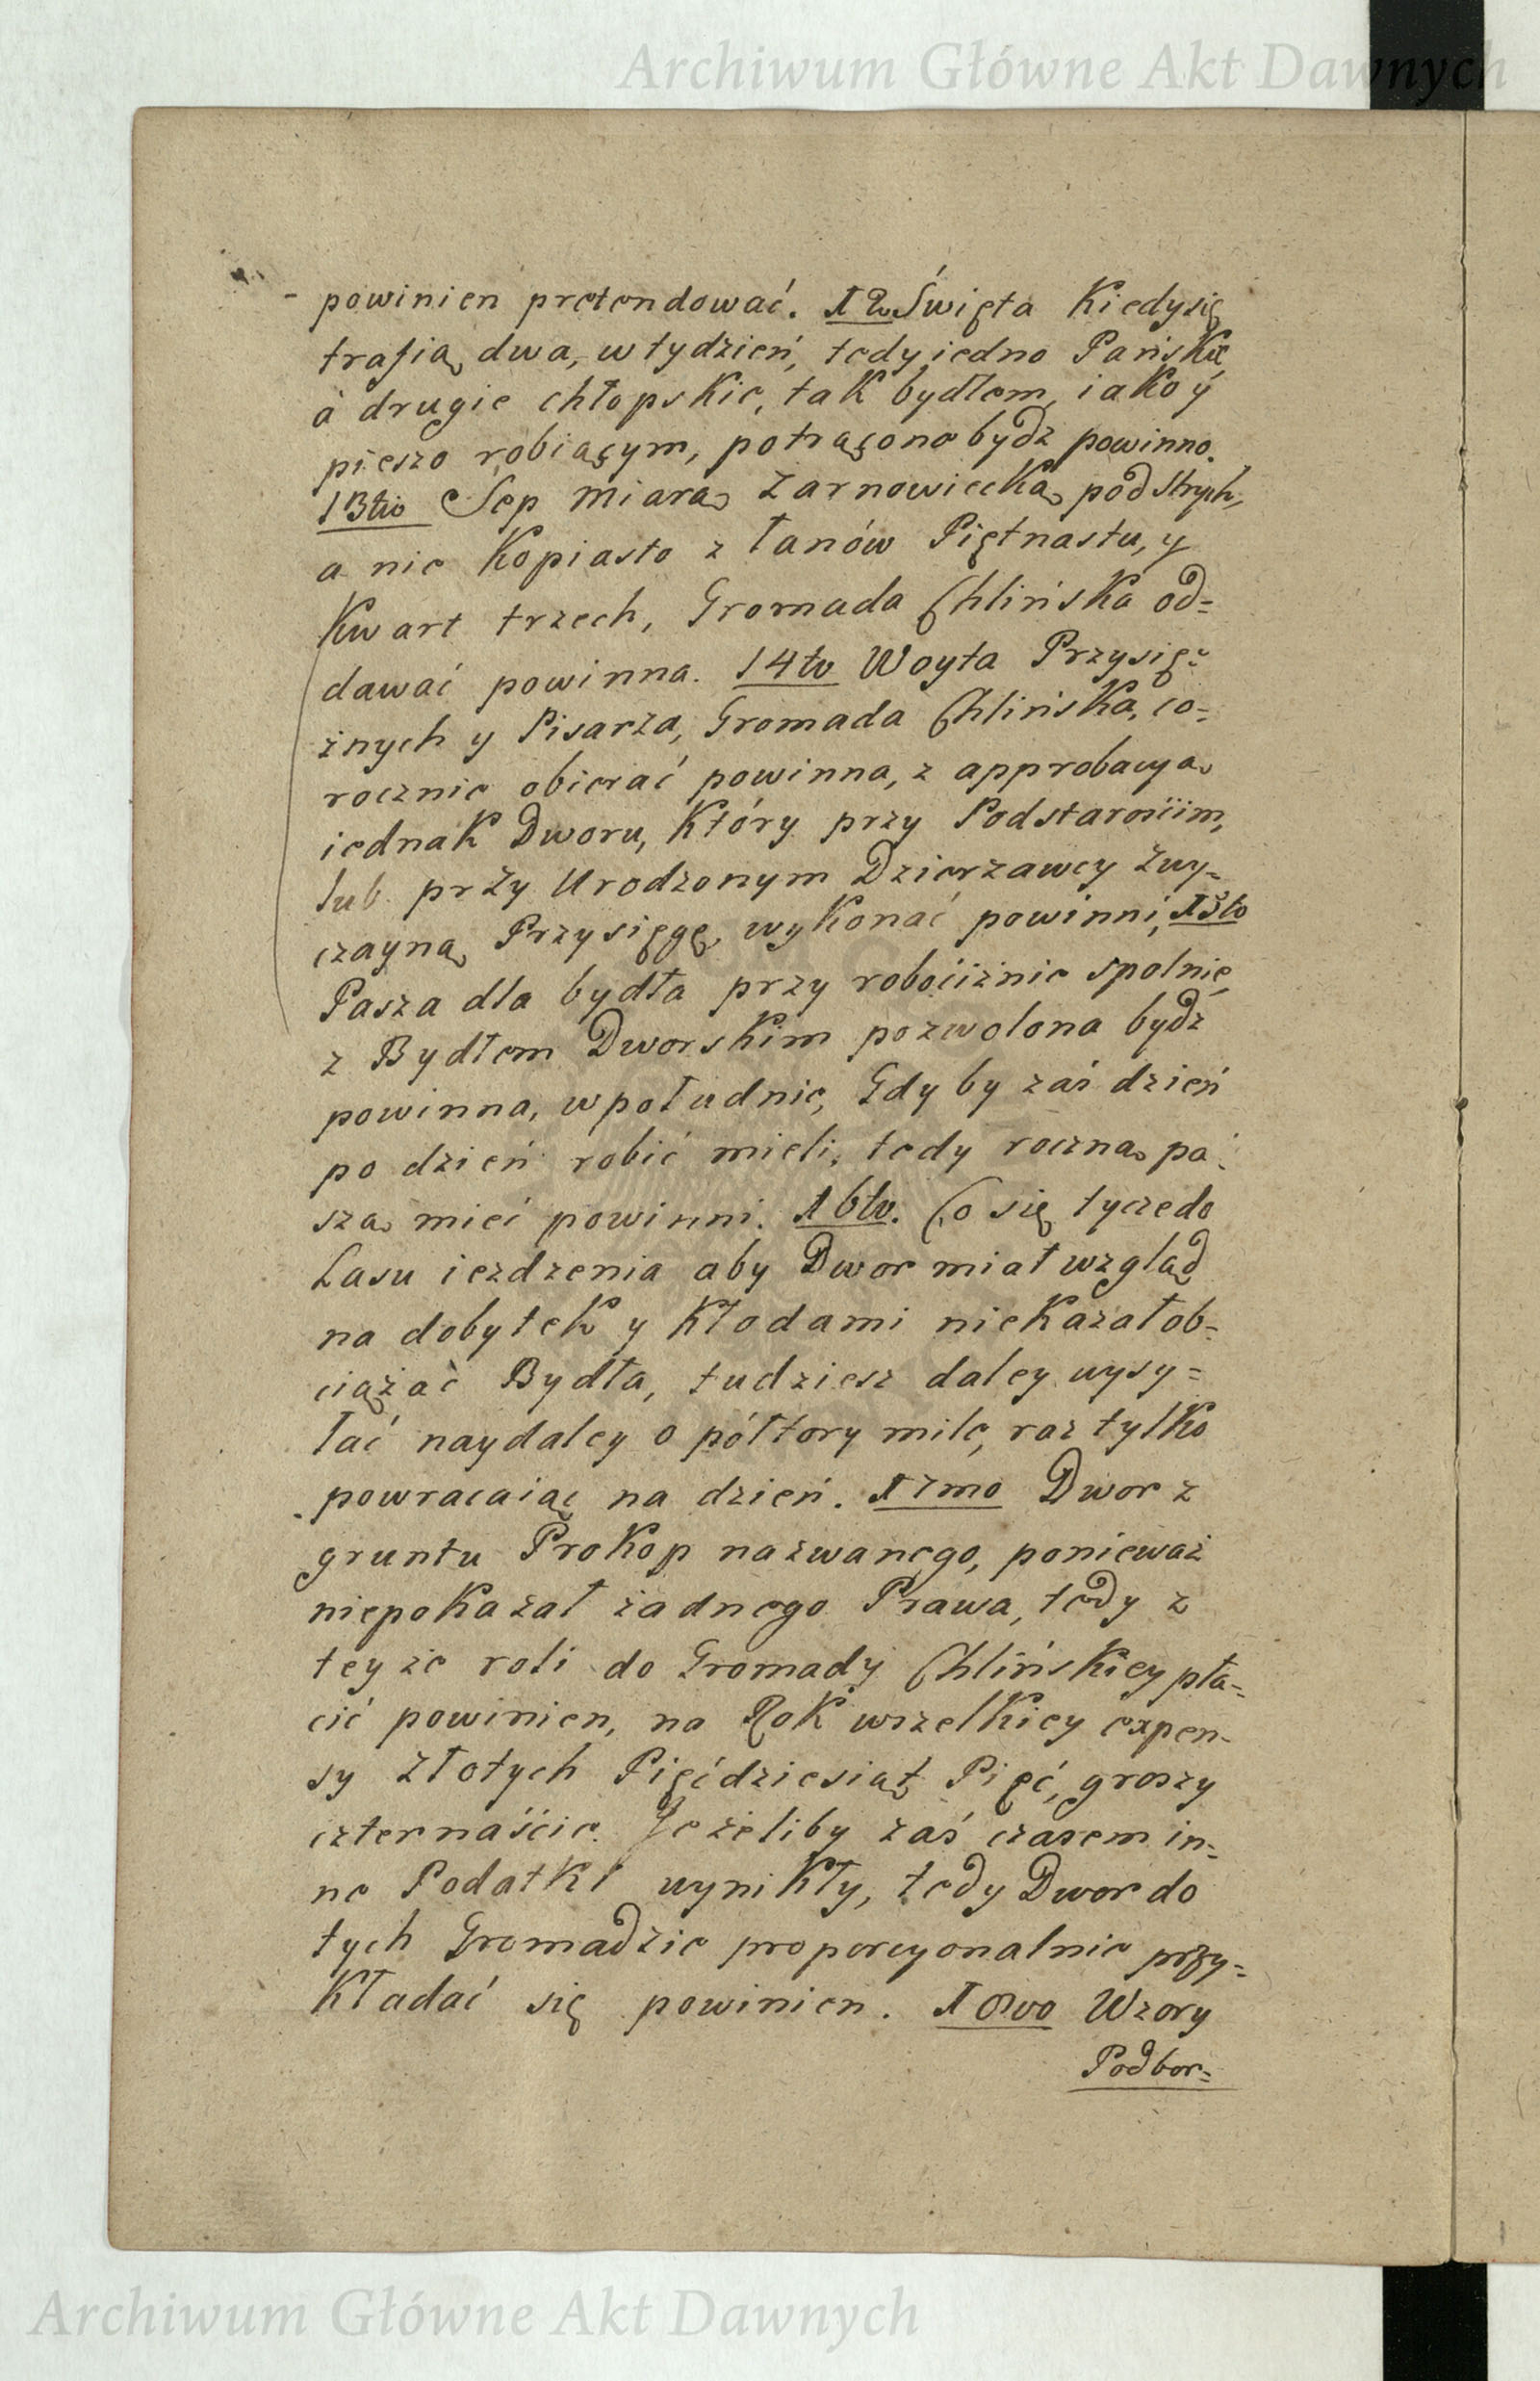 Archiwum Główne Akt Dawnych
- powinien pretendować. 12. Święta Kiedysię
trafią dwa, w tydzień, tedy iedno Pańskie,
à drugie chłopskie, tak bydłem, iako y
pieszo robiącym, potrącono bydz powinno.
13tio Sep miarą Zarnowiecką pod Strych,
a nie Kopiasto z Łanów Piętnastu, y
Kwart trzech, Gromada Chlińska od=
dawać powinna. 14to Woyta Przysię=
żnych y Pisarza, Gromada Chlińska, co=
rocznie obierać powinna, z approbacyą
iednak Dworu, Który przy Podstarościm,
lub przy Urodzonym Dzierzawcy zwy=
czayną Przysięgę wykonać powinni, 15to
Pasza dla bydła przy robociźnie spolnie,
z Bydłem Dworskim pozwolona bydz
powinna, w południe, Gdy by zaś dzień
po dzień robić mieli, tedy roczną pa=
szą mieć powinni. 16to. Co się tycze do
Lasu iezdzenia aby Dwor miał wzgląd
na dobytek y Kłodami niekazał ob=
ciążać Bydła, tudziesz daley wysy=
łać naydaley o półtory mile, raz tylko
powracaiąc na dzień. 17mo Dwor z
gruntu Prokop nazwanego, ponieważ
niepokazał żadnego Prawa, tedy z
teyże roli do Gromady Chlińskiey pła=
cić powinien, na Rok wszelkiey expen=
sy Złotych Pięćdziesiąt Pięć, groszy
czternaście. Jeżeliby zaś czasem in=
ne Podatki wynikły, tedy Dwor do
tych Gromadzie proporcyonalnie przy=
Kładać się powinien. 18vo Wzory
Podbor=
Archiwum Główne Akt Dawnych